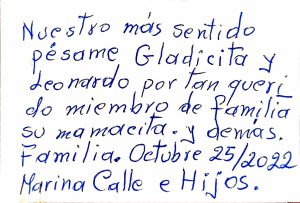 Nuestro más sentido
pésame Gladicita y
Leonardo por tan queri
do miembro de familia
su mamacita. y demás.
Familia. Octubre 25/2022
Marina Calle e Hijos.